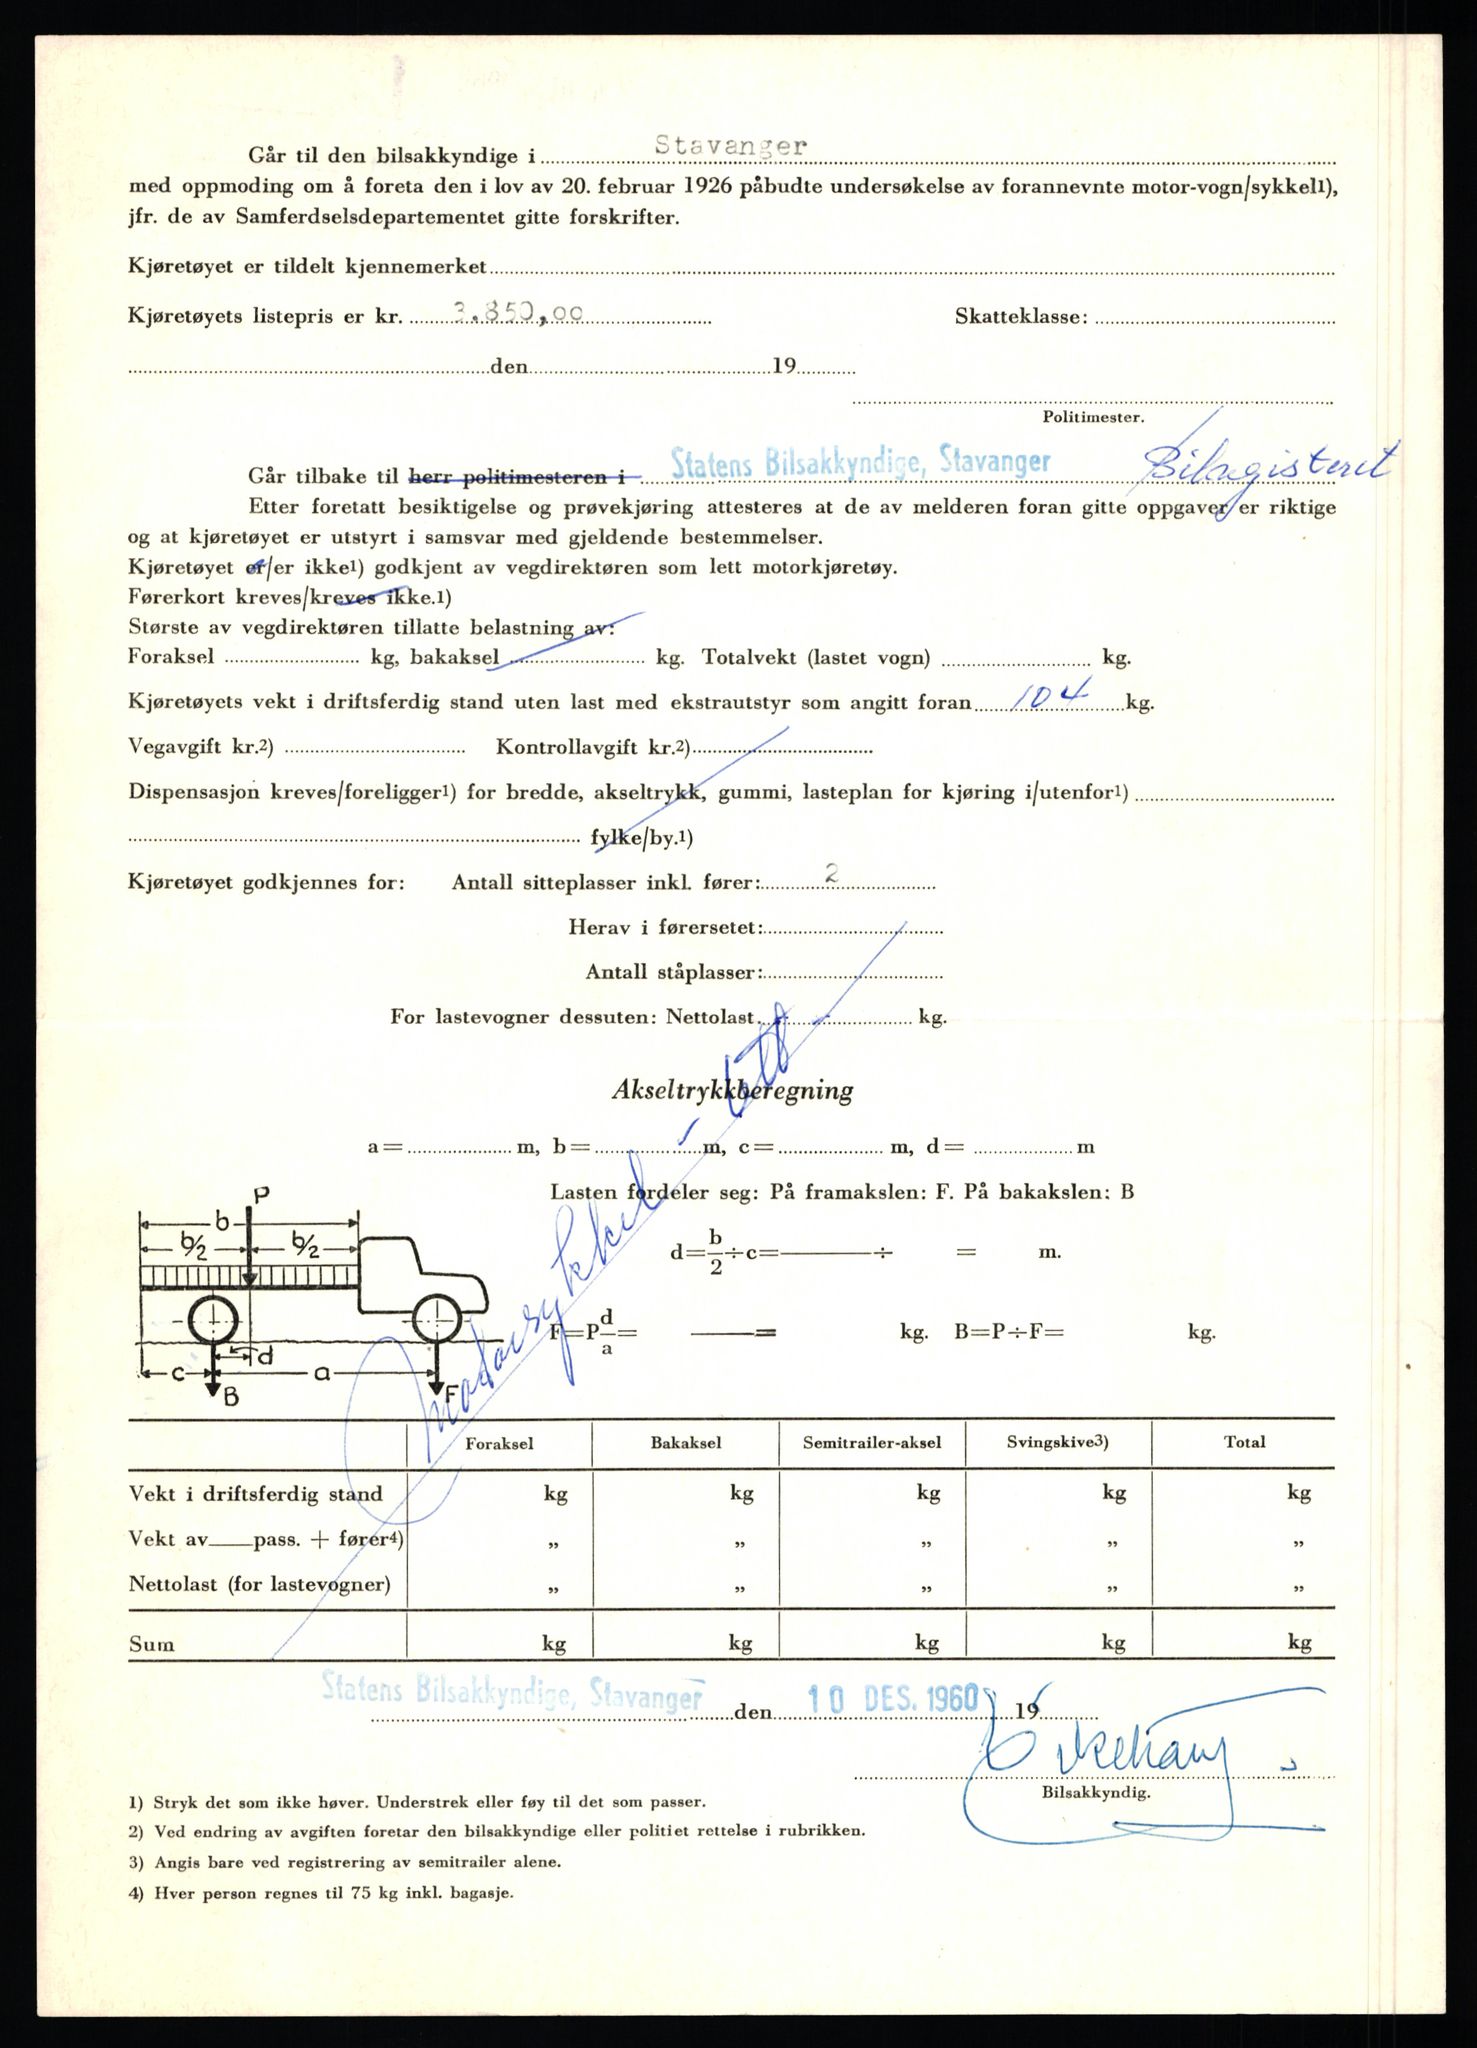 Går til den bilsakkyndige i Stavanger
med oppmoding om å foreta den i lov av 20. februar 1926 påbudte undersøkelse av forannevnte motor-vogn/sykkel1),
jfr. de av Samferdselsdepartementet gitte forskrifter.
Kjøretøyet er tildelt kjennemerket
Kjøretøyets listepris er kr. 3.850,00 Skatteklasse:
den 19
Politimester.
Går tilbake til herr politimesteren i Statens Bilsakkyndige, Stavanger Bilregisteret
Etter foretatt besiktigelse og prøvekjøring attesteres at de av melderen foran gitte oppgaver er riktige
og at kjøretøyet er utstyrt i samsvar med gjeldende bestemmelser.
Kjøretøyet er/er ikke1) godkjent av vegdirektøren som lett motorkjøretøy.
Førerkort kreves/kreves ikke.1)
Største av vegdirektøren tillatte belastning av:
Foraksel kg, bakaksel kg. Totalvekt (lastet vogn) kg.
Kjøretøyets vekt i driftsferdig stand uten last med ekstrautstyr som angitt foran 104 kg.
Vegavgift kr.2) Kontrollavgift kr.2)
Dispensasjon kreves/foreligger1) for bredde, akseltrykk, gummi, lasteplan for kjøring i/utenfor1)
fylke/by.1)
Kjøretøyet godkjennes for: Antall sitteplasser inkl. fører: 2
Herav i førersetet:
Antall ståplasser:
For lastevogner dessuten: Nettolast. kg.
Motorsykkel - lett
Akseltrykkberegning
a = m, b = m, c = m, d = m
Lasten fordeler seg: På framakslen: F. På bakakslen: B
d = b/2 ÷ c = ÷ = m.
F = P d/a = = kg. B = P ÷ F = kg.
P
b
b/2 b/2
d
c a
B F
Foraksel Bakaksel Semitrailer-aksel Svingskive3) Total
Vekt i driftsferdig stand kg kg kg kg kg
Vekt av pass. + fører4) „ „ „ „ „
Nettolast (for lastevogner) „ „ „ „ „
Sum kg kg kg kg kg
Statens Bilsakkyndige, Stavanger den 10 DES. 1960 19
Bilsakkyndig.
1) Stryk det som ikke høver. Understrek eller føy til det som passer.
2) Ved endring av avgiften foretar den bilsakkyndige eller politiet rettelse i rubrikken.
3) Angis bare ved registrering av semitrailer alene.
4) Hver person regnes til 75 kg inkl. bagasje.